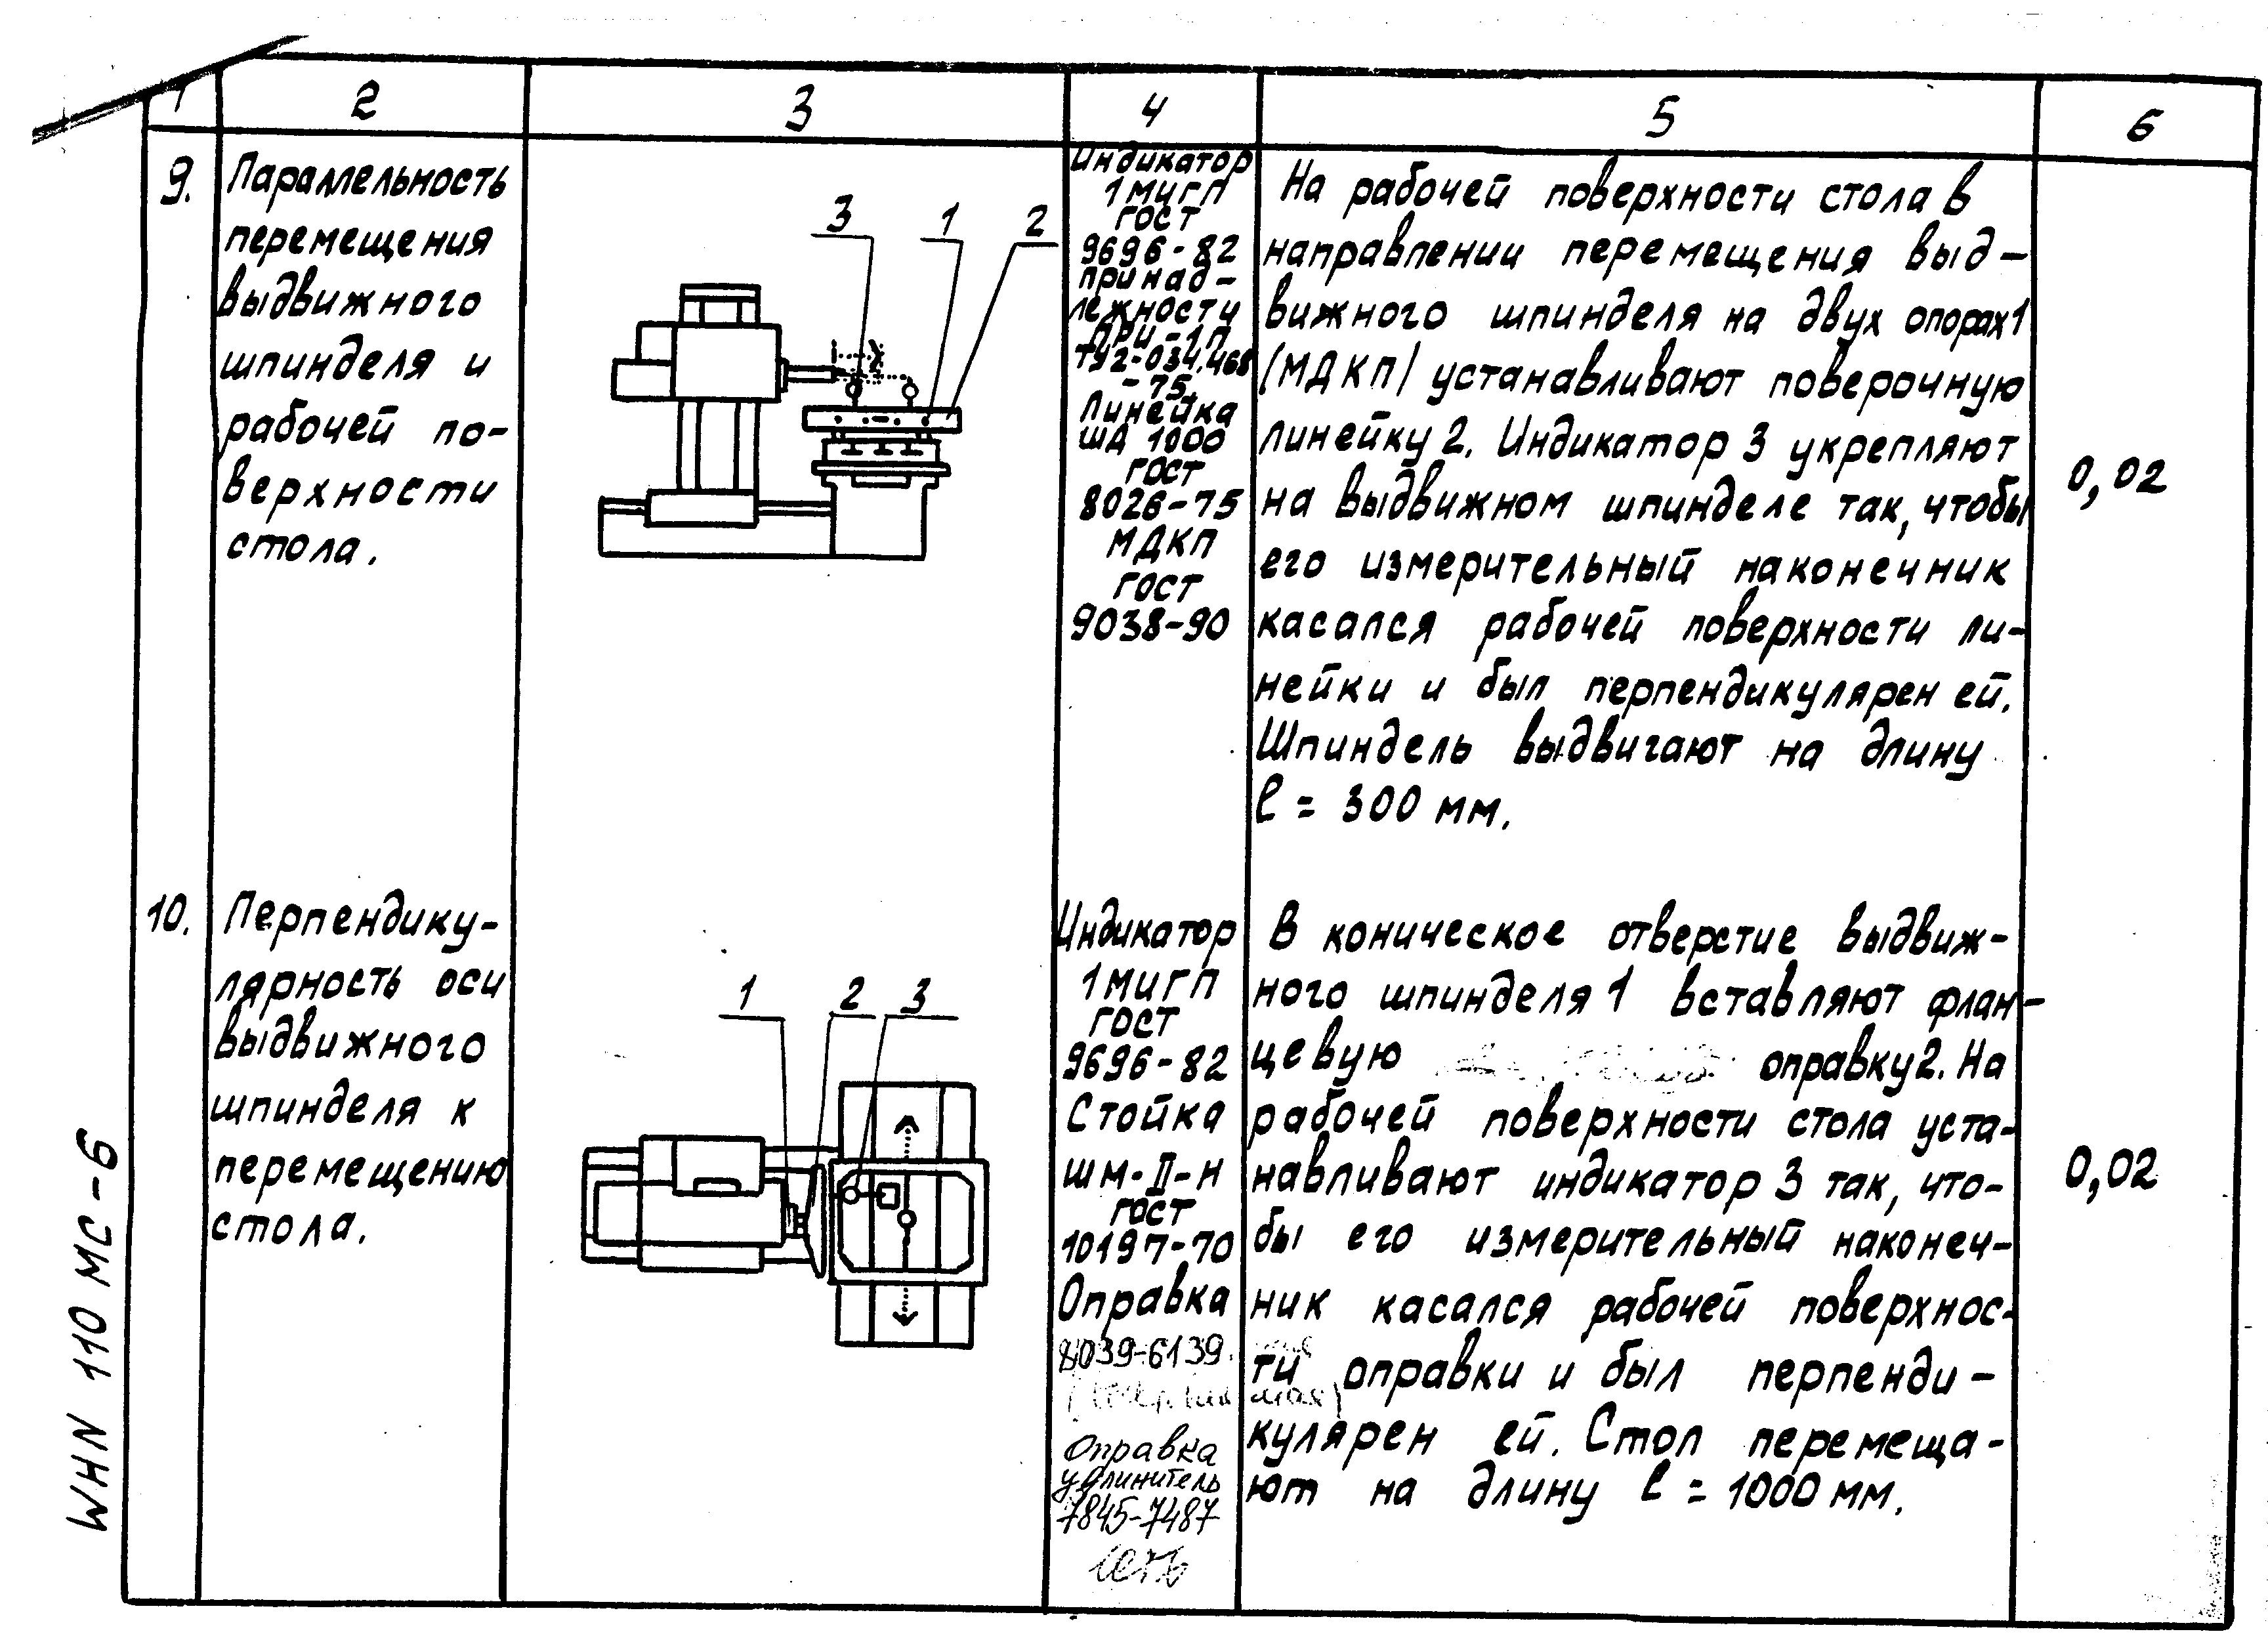 1 2 3 4 5 6
9.
Параллельность
перемещения
выдвижного
шпинделя и
рабочей по-
верхности
стола.
3 1 2
Индикатор
1МИГП
ГОСТ
9696-82
принад-
лежности
ПРИ-1П
ТУ2-034.468
-75.
Линейка
ШД 1000
ГОСТ
8026-75
МДКП
ГОСТ
9038-90
На рабочей поверхности стола в
направлении перемещения выд-
вижного шпинделя на двух опорах 1
/МДКП/ устанавливают поверочную
линейку 2. Индикатор 3 укрепляют
на выдвижном шпинделе так, чтобы
его измерительный наконечник
касался рабочей поверхности ли-
нейки и был перпендикулярен ей.
Шпиндель выдвигают на длину
l = 300 мм.
0,02
10.
Перпендику-
лярность оси
выдвижного
шпинделя к
перемещению
стола.
1 2 3
Индикатор
1МИГП
ГОСТ
9696-82
Стойка
ШМ-II-Н
ГОСТ
10197-70
Оправка
8039-6139
Оправка
удлинитель
7845-7487
есть
В коническое отверстие выдвиж-
ного шпинделя 1 вставляют флан-
цевую оправку 2. На
рабочей поверхности стола уста-
навливают индикатор 3 так, что-
бы его измерительный наконеч-
ник касался рабочей поверхнос-
ти оправки и был перпенди-
кулярен ей. Стол перемеща-
ют на длину l = 1000 мм.
0,02
WHN 110 MC-6